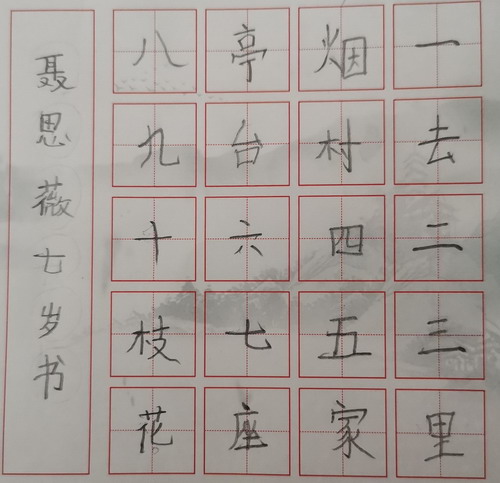 一去二三里
烟村四五家
亭台六七座
八九十枝花
聂思薇七岁书